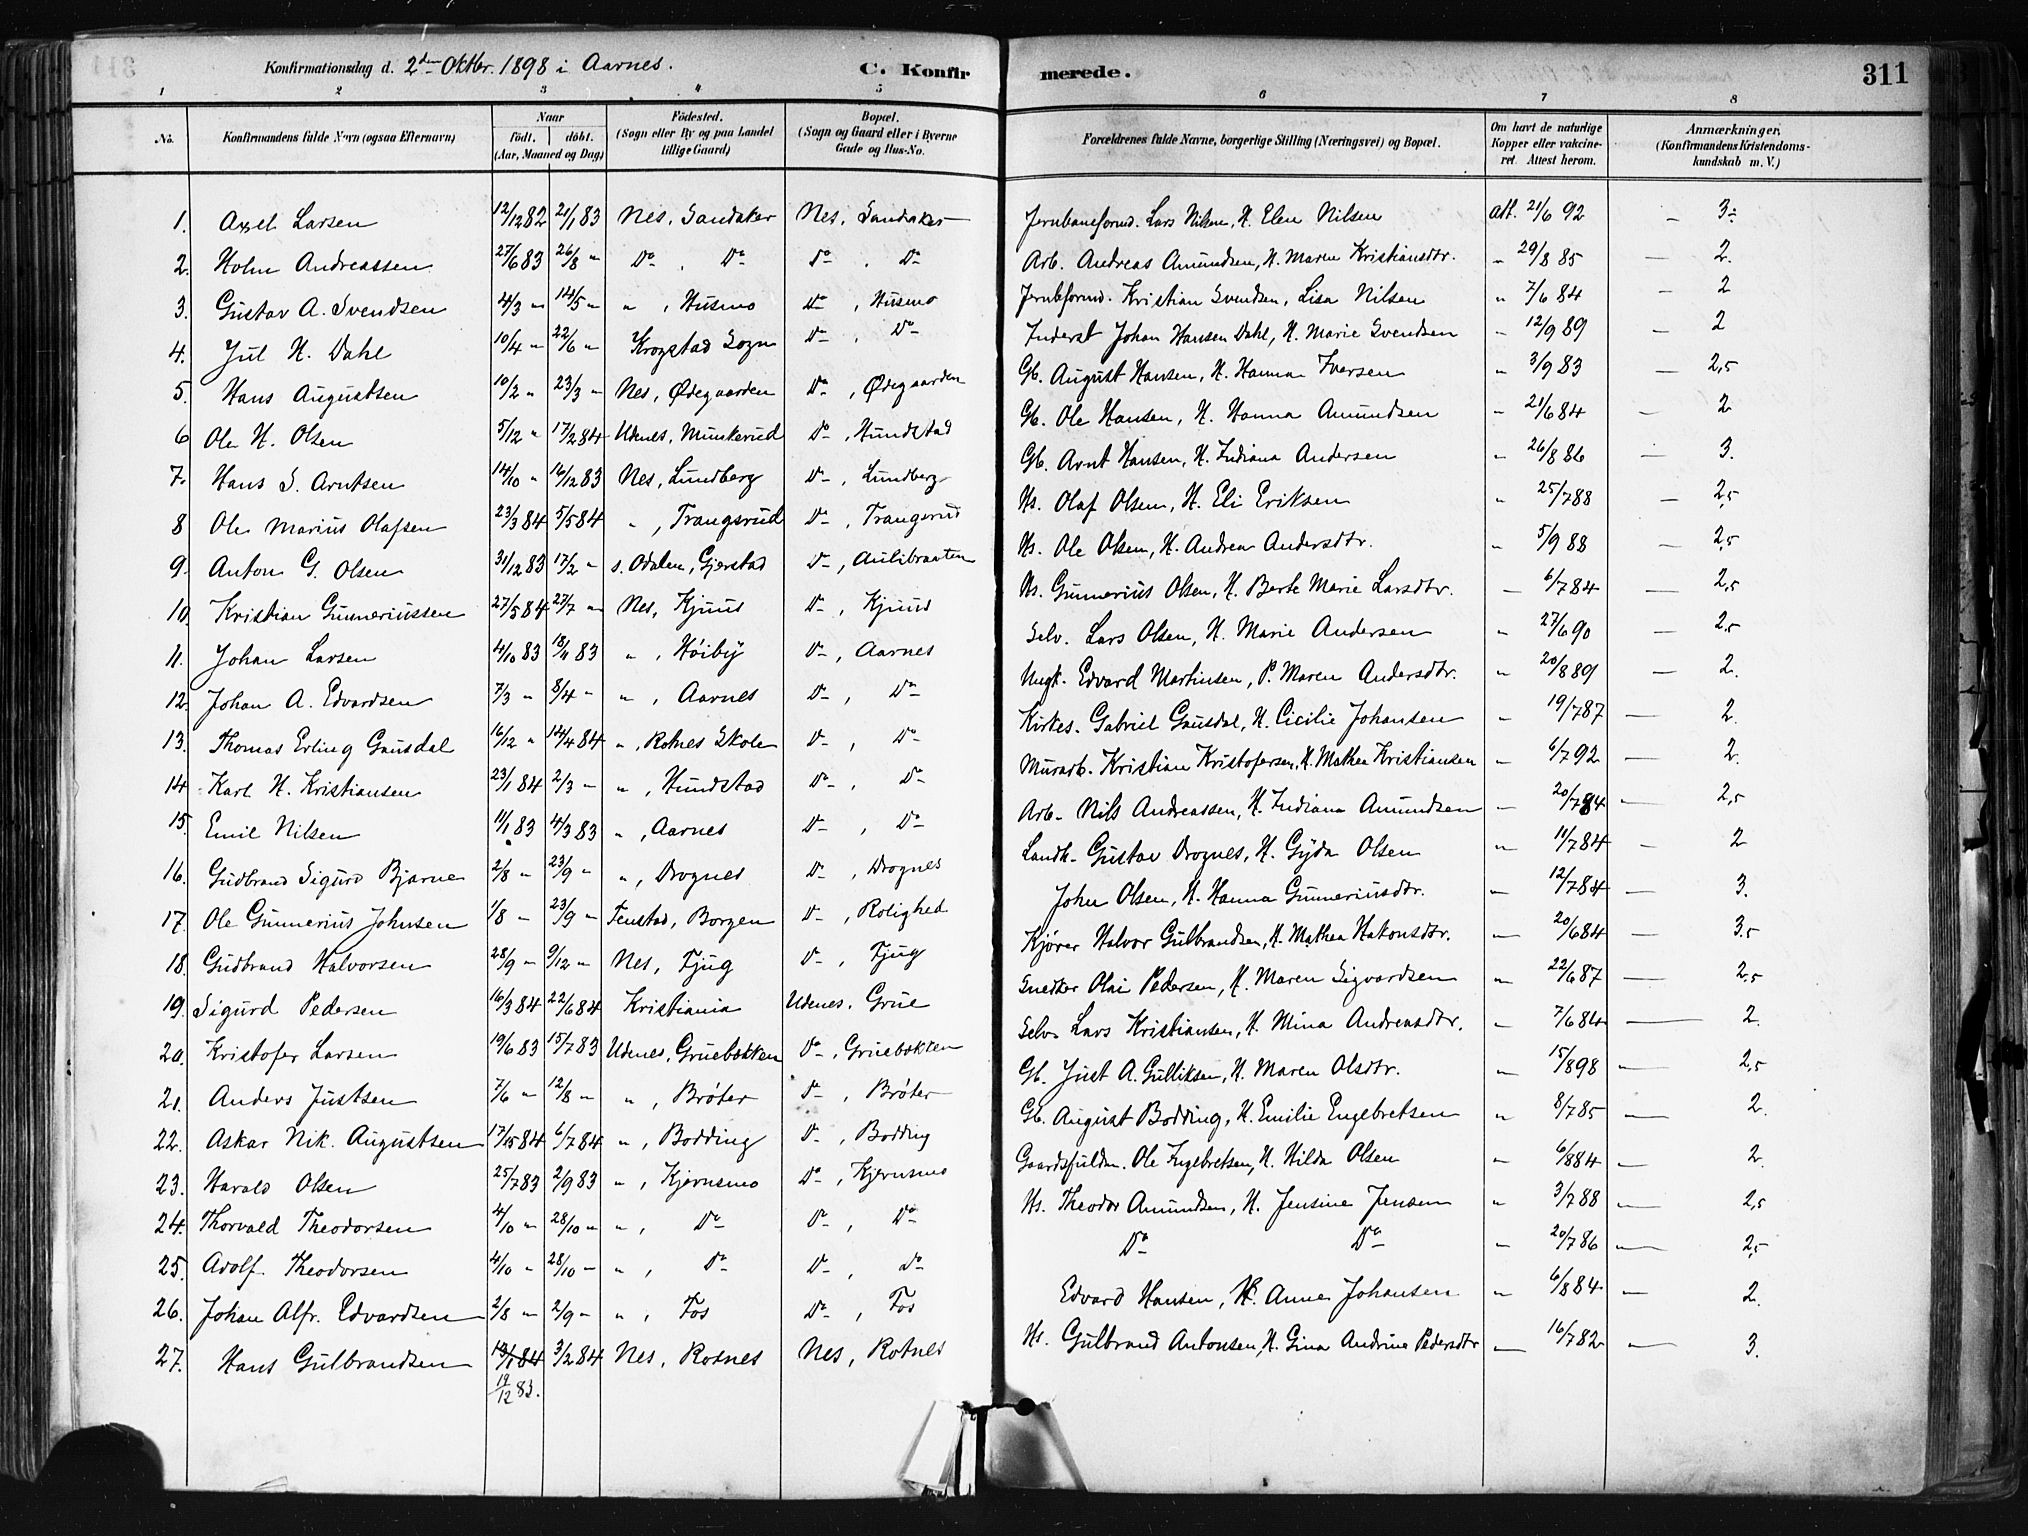 Konfirmationsdag d. 2den Oktbr. 1898 i Aarnes. C. Konfirmerede. 311
1 2 3 4 5 6 7 8
No. Konfirmandens fulde Navn (ogsaa Efternavn) Naar födt. döbt. (Aar, Maaned og Dag) Födested. (Sogn eller By og paa Landet tillige Gaard) Bopæl. (Sogn og Gaard eller i Byerne Gade og Hus-No. Forældrenes fulde Navne, borgerlige Stilling (Næringsvei) og Bopæl. Om havt de naturlige Kopper eller vakcineret. Attest herom. Anmærkninger. (Konfirmandens Kristendomskundskab m. V.)
1. Axel Larsen 12/12 82 21/1 83 Nes, Sandaker Nes, Sandaker Jernbaneformd. Lars Nilsen, H. Elen Nilsen Att. 21/6 92 — 3÷
2. Holm Andreassen 27/6 83 26/8 " Do , Do Do , Do Arb. Andreas Amundsen, H. Maren Kristiansdtr. " 29/8 85 — 2.
3. Gustav A. Svendsen 4/3 " 14/5 " " , Husmo Do , Husmo Jernbformd. Kristian Svendsen, Lisa Nilsen " 7/6 84 — 2
4. Jul H. Dahl 10/4 " 22/6 " Krogstad Sogn Do , Do Inderst Johan Hansen Dahl, H. Marie Svendsen " 12/9 89 — 2
5. Hans Augustsen 10/2 " 23/3 " Nes, Ødegaarden Do , Ødegaarden Gb. August Hansen, H. Hanna Iversen " 3/9 83 — 2,5
6 Ole H. Olsen 5/12 " 17/2 84 Udnes, Munkerud Do , Hundstad Gb. Ole Hansen, H. Hanna Amundsen " 21/6 84 — 2
7. Hans S. Arntsen 14/10 " 16/12 83 Nes, Lundberg Do , Lundberg Gb. Arnt Hansen, H. Indiana Andersen " 26/8 86 — 3.
8 Ole Marius Olafsen 23/3 84 5/5 84 " , Trangsrud Do , Trangsrud Hs. Olaf Olsen, H. Eli Eriksen " 25/7 88 — 2,5
9. Anton G. Olsen 31/12 83 17/2 " s. Odalen, Gjerstad Do , Aulibraaten Hs. Ole Olsen, H. Andrea Andersdtr. " 5/9 88 — 2,5
10. Kristian Gunneriussen 27/5 84 27/7 " Nes, Kjuus Do , Kjuus Hs. Gunnerius Olsen, H. Berte Marie Larsdtr. — 6/7 84 — 2,5
11. Johan Larsen 4/10 83 18/11 83 " , Höiby Do , Aarnes Selv. Lars Olsen, H. Marie Andersen " 27/6 90 — 2,5
12. Johan A. Edvardsen 7/3 " 8/4 " " , Aarnes Do , Do Ungk. Edvard Martinsen, P. Maren Andersdtr. " 20/8 89 — 2.
13. Thomas Erling Gausdal 16/12 " 14/4 84 " , Rotnes Skole Do , Do Kirkes. Gabriel Gausdal, H. Cicilie Johansen " 19/7 87 — 2.
14. Karl H. Kristiansen 23/1 84 2/3 — " , Hundstad Do , Do Murarb. Kristian Kristofersen, H. Mathea Kristiansen — 6/7 92 — 2.
15. Emil Nilsen 11/1 83 4/3 83 " , Aarnes Do , Do Arb. Nils Andreassen, H. Indiana Amundsen — 20/7 84 — 2,5
16. Gudbrand Sigurd Bjarne 2/8 " 23/9 " " , Drognes Do , Drognes Landh. Gustav Drognes, H. Gyda Olsen " 10/7 84 — 2
17. Ole Gunnerius Johnsen 1/8 — 23/9 — Fenstad, Borgen Do , Rolighed John Olsen, H. Hanna Gunneriusdtr. — 12/7 84 — 3.
18. Gudbrand Halvorsen 28/9 — 9/12 — Nes, Fjug Do , Fjug Kjörer Halvor Gulbrandsen, H. Mathea Hakonsdtr. — 20/6 84 — 3,5
19. Sigurd Pedersen 16/3 84 22/6 84 Kristiania Udnes, Grue Snedker Olai Pedersen, H. Maren Sigvardsen — 22/6 87 — 2,5
20. Kristofer Larsen 19/6 83 15/7 83 Udnes, Gruebækken Do , Gruebækken Selv. Lars Kristiansen, H. Mina Andreasdtr. — 7/6 84 — 2.
21. Anders Justsen 7/6 " 12/8 — " , Bröter Do , Bröter Gb. Just A. Gulliksen, H. Maren Olsdtr. — 15/8 98 — 2,5
22. Askar Nik. Augustsen 17/5 84 6/7 84 " , Bodding Do , Bodding Gb. August Bodding, H. Emilie Engebretsen " 8/7 85 — 2.
23. Harald Olsen 25/7 83 2/9 83 " , Kjernsmo Do , Kjernsmo Gaardsfuldm. Ole Ingebretsen, H. Hilda Olsen " 6/8 84 — 2.
24. Thorvald Theodorsen 4/10 " 28/10 " " , Do Do , Do Hs. Theodor Amundsen, H. Jensine Jensen " 3/7 88 — 2,5
25. Adolf Theodorsen 4/10 " 28/10 — " , Do Do , Do Do Do " 20/7 86 — 2,5
26. Johan Alfr. Edvardsen 2/8 — 2/9 — " , Fos Do , Fos Edvard Hansen, H. Anne Johansen " 6/8 84 — 2.
27. Hans Gulbrandsen 19/1 84 3/2 84 Nes, Rotnes Nes, Rotnes Hs. Gulbrand Antonsen, H. Gina Andrine Pedersdtr — 16/7 82 — 3.
19/12 83.